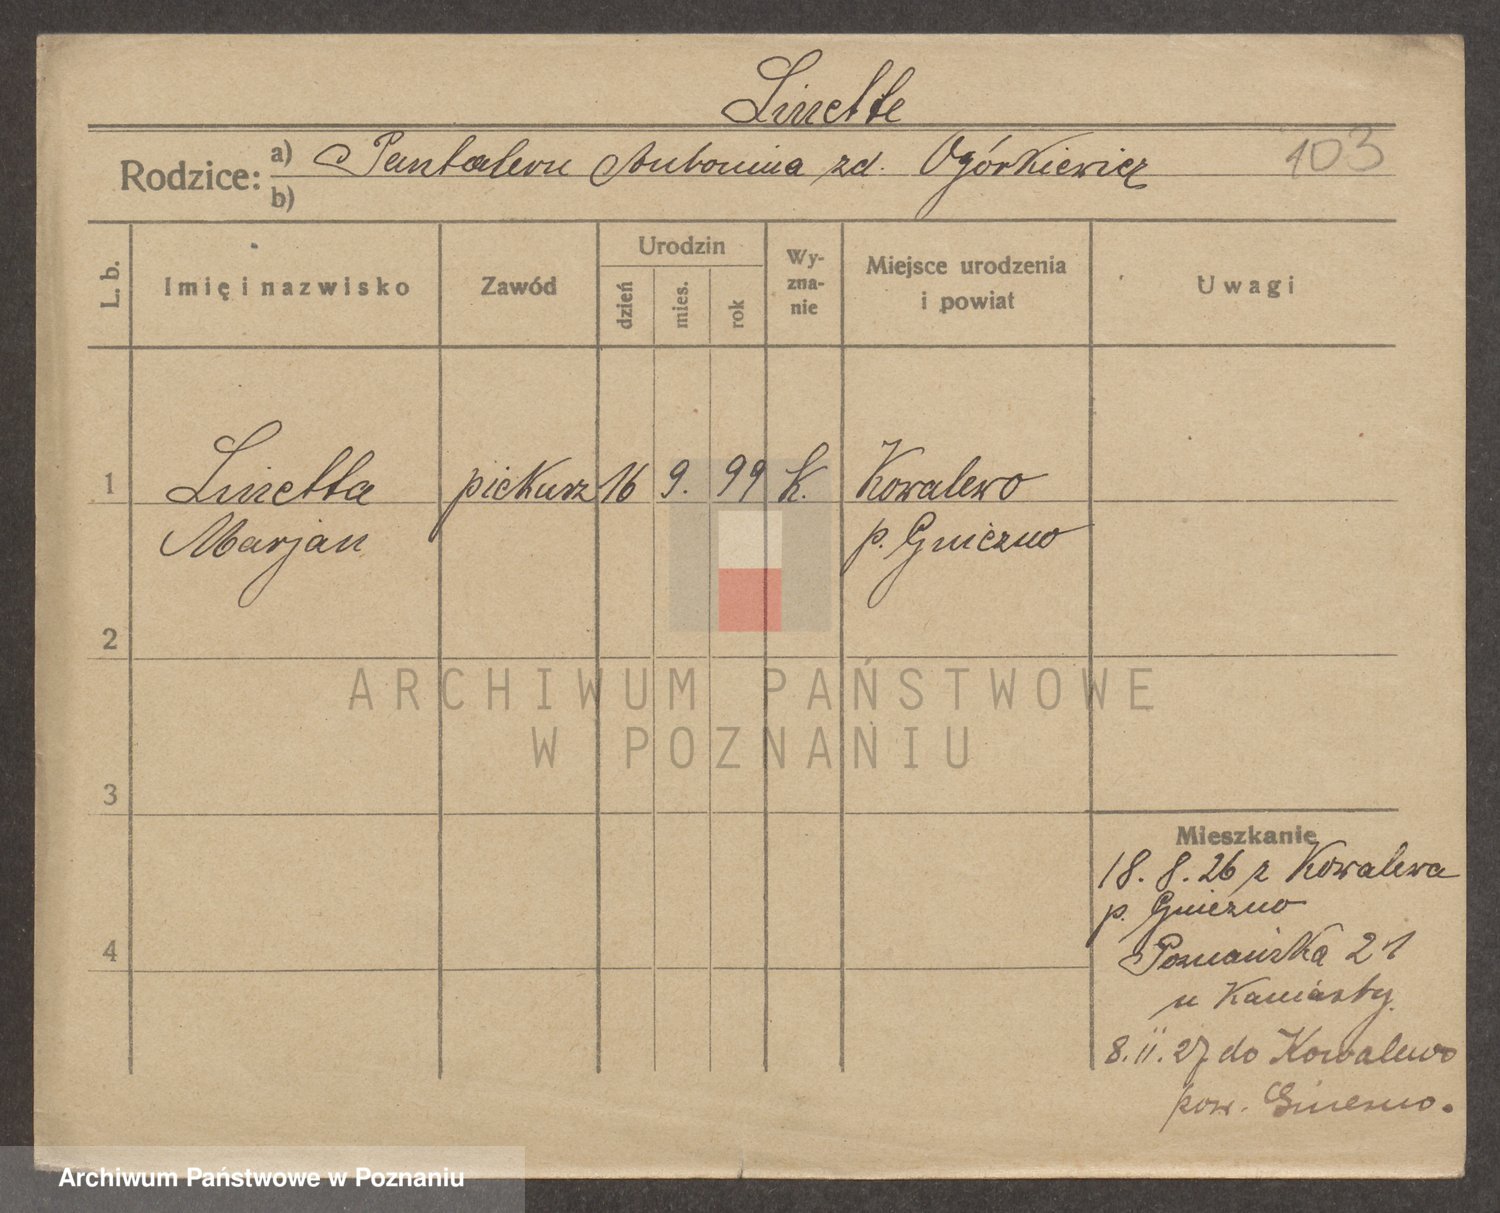 Linette
Rodzice: a) Pantaleon Antonina zd. Ogórkiewicz 103
b)
L. b. Imię i nazwisko Zawód Urodzin dzień mies. rok Wy-zna-nie Miejsce urodzenia i powiat Uwagi
1 Linetta piekarz 16 9. 99 k. Kowalewo
Marjan p. Gniezno
2
3
Mieszkanie
18. 8. 26 z Kowalewa
p. Gniezno
4
Poznańska 21
u
8. II. 27 do Kowalewo
pow. Gniezno.
ARCHIWUM PAŃSTWOWE
W POZNANIU
Archiwum Państwowe w Poznaniu